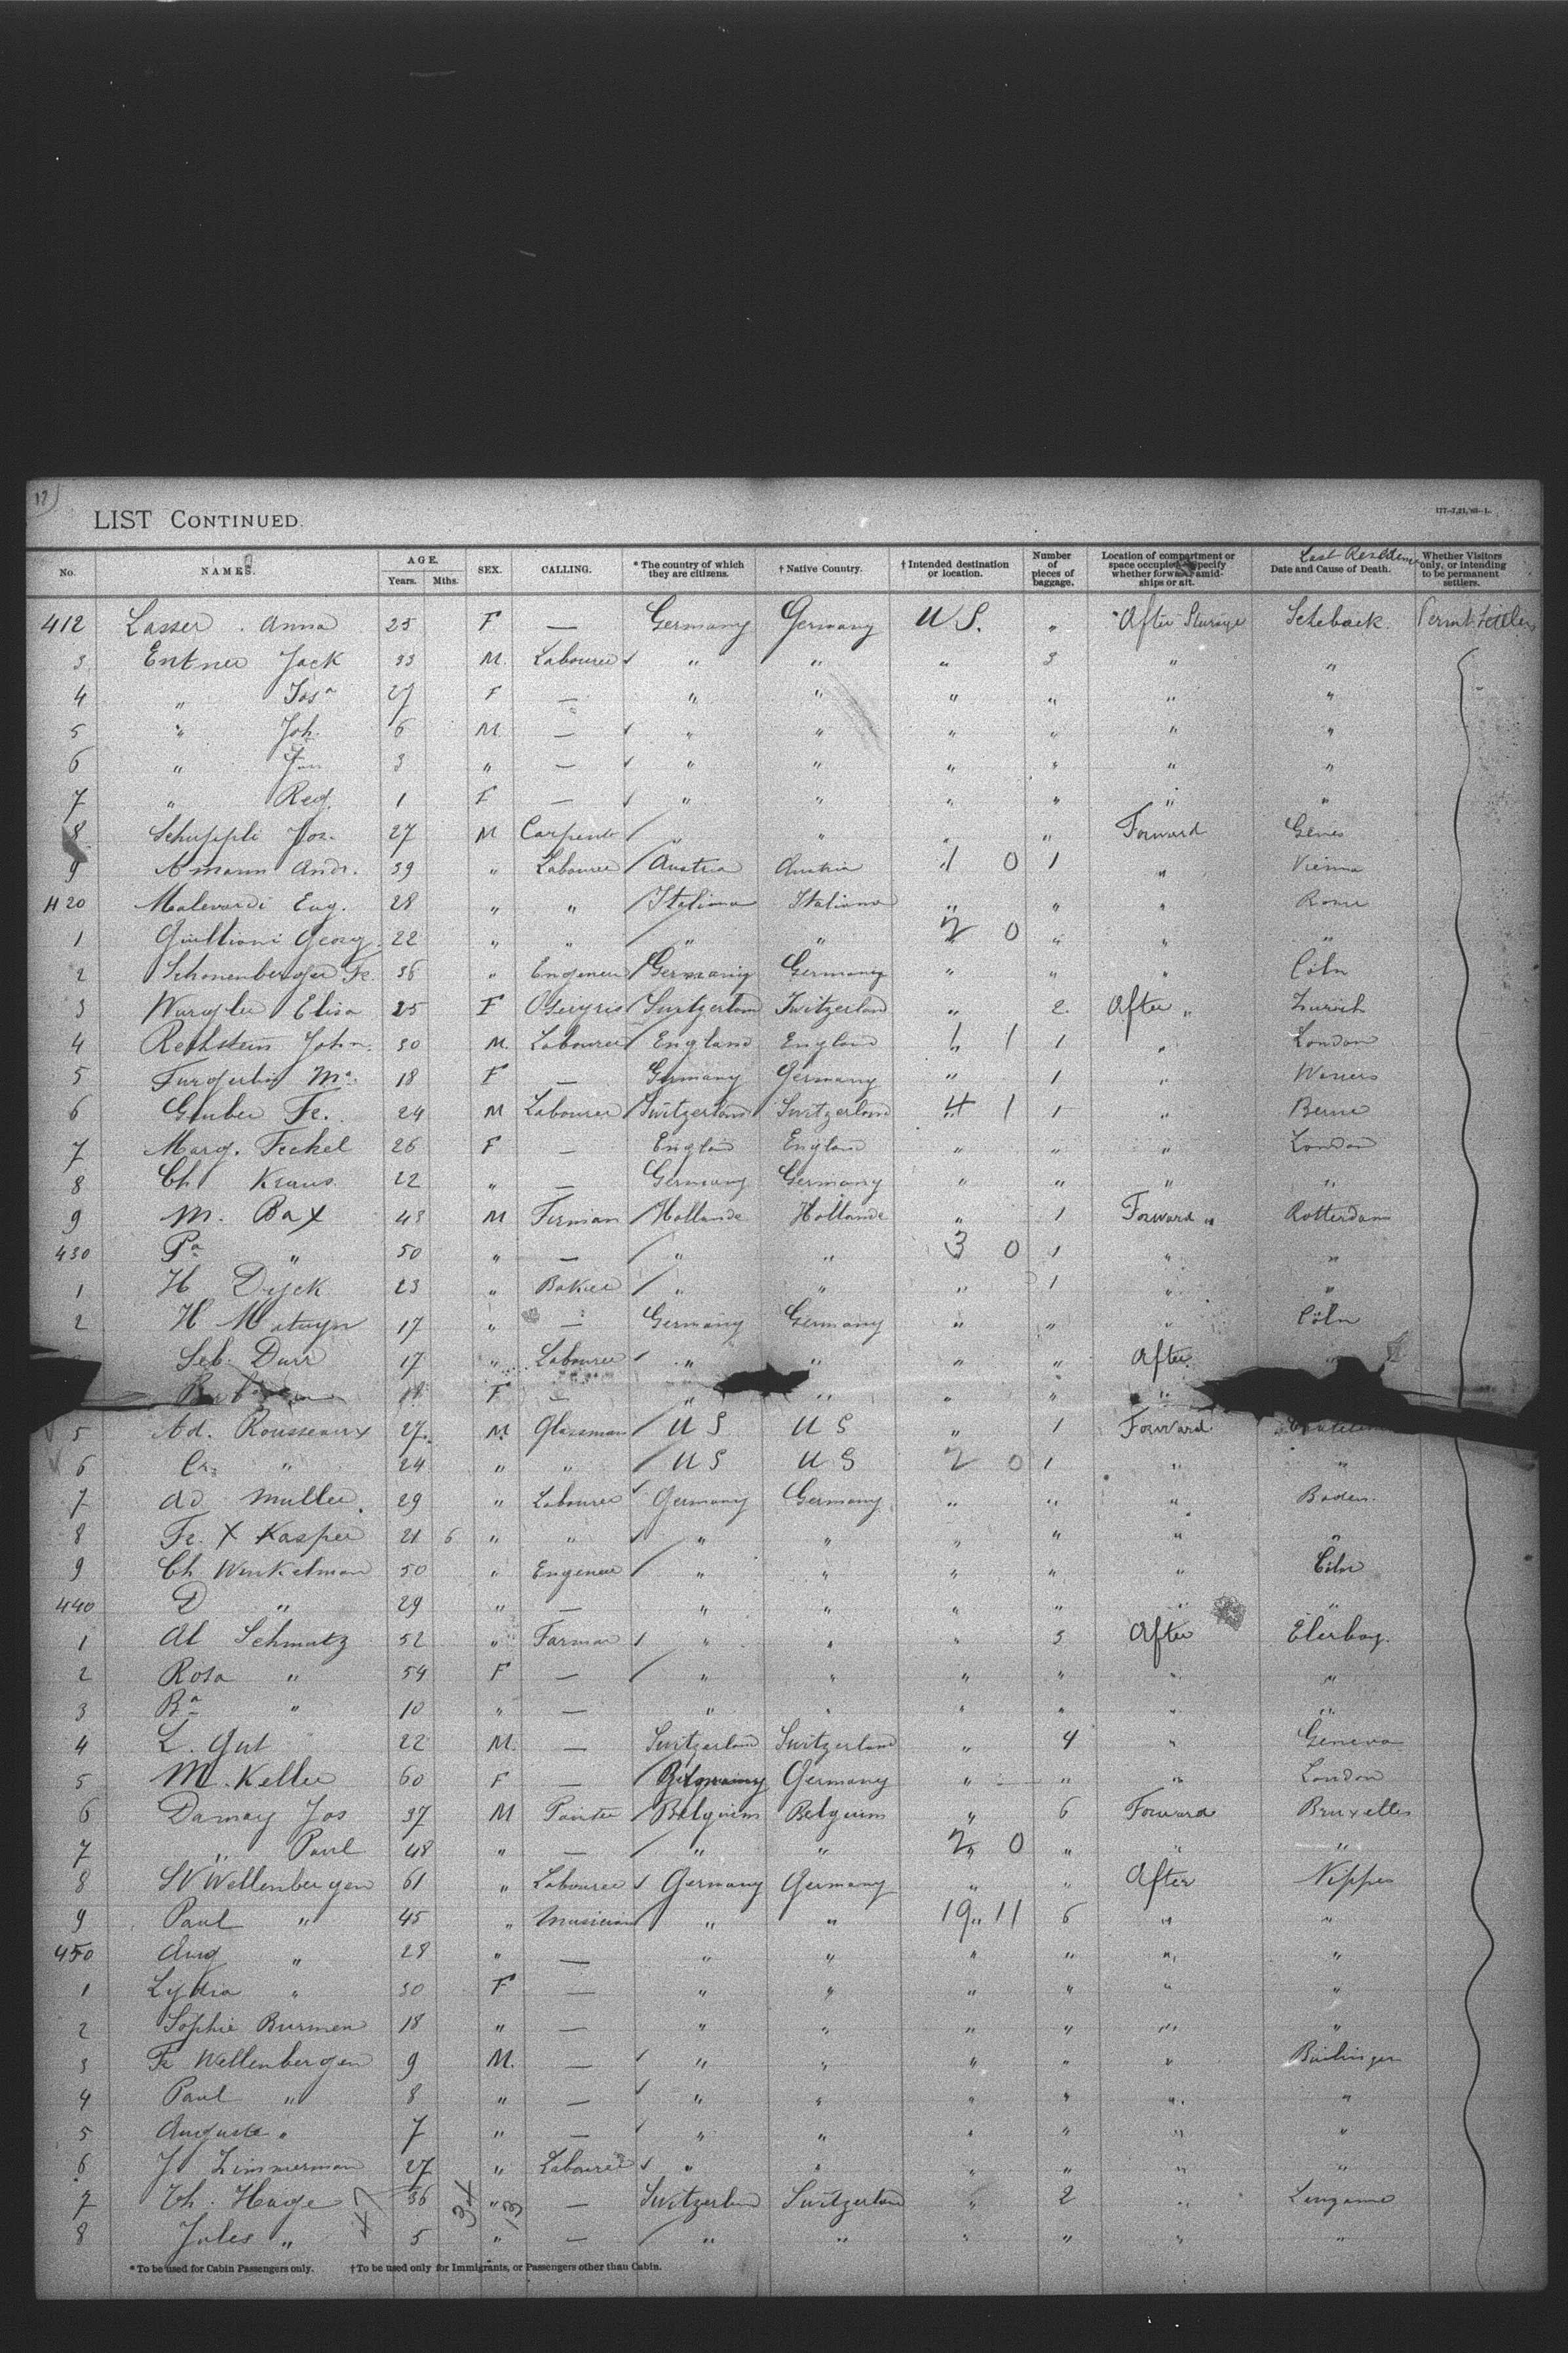 12)
LIST CONTINUED.
177-7,21,'93-1.
No. NAMES. AGE. Years. Mths. SEX. CALLING. * The country of which they are citizens. † Native Country. † Intended destination or location. Number of pieces of baggage. Location of compartment or space occupied. Specify whether forward, amidships or aft. Last Residence Date and Cause of Death. Whether Visitors only, or intending to be permanent settlers.
412 Lasser Anna 25 F — Germany Germany U S. " After Sturage Scheback
3 Entner Jack 33 M. Labourer ✓ " " " 3 " "
4 " Josa 27 F — " " " " " "
5 " Joh. 6 M. — ✓ " " " " " "
6 " 3 " — ✓ " " " " " "
7 " Reg. 1 F — ✓ " " " " " "
8 Schuppli Jos. 27 M Carpenter / " " " " Forward
9 Amann Andr. 39 " Labourer / Austria Austria 1 0 1 " Vienna
420 Malevardi Eug. 28 " " / Italiana Italiana " " " Rome
1 Georg. 22 " " / " " 2 0 " " "
2 Schonenberger Fr. 36 " Engeneer / Germany Germany " " " Cöln
3 Wurgler Elisa 25 F Switzerland Switzerland " 2. After " Zurich
4 Rechstein John. 30 M. Labourer / England England 1 1 1 " London
5 Ma. 18 F — Germany Germany " 1 "
6 Gruber Fr. 24 M Labourer / Switzerland Switzerland 4 1 1 " Berne
7 Marg. Feckel 26 F — England England " " " London
8 Ch Kraus 22 " — Germany Germany " " " "
9 M. Bax 43 M / Hollande Hollande " 1 Forward " Rotterdam
430 Pa " 50 " — / " " 3 0 1 " "
1 H Dyck 23 " Baker / " " " 1 " "
2 H 17 " — Germany Germany " " " Cöln
Seb. Durr 17 " Labourer ✓ " " " " After "
18 F — " " " " "
5 Ad. Rousseaux 27 M. Glassman / U S U S " 1 Forward
6 " 24 " " / U S U S 2 0 1 " "
7 Ad Muller. 29 " Labourer ✓ Germany Germany " " " Baden.
8 Fr. X Kasper 21 6 " " ✓ " " " " " "
9 Ch Winkelman 50 " Engeneer / " " " " " Cöln
440 D " 29 " — " " " " " "
1 Al Schmutz 52 " Farmer ✓ " " " 5 After
2 Rosa " 54 F — / " " " " " "
3 Ba " 10 " — " " " " " "
4 L. Gut 22 M. — Switzerland Switzerland " 4 " Geneva
5 M. Keller 60 F — Germany " " " London
6 Damay Jos 37 M Painter / Belguim Belguim " 6 Forward Bruxelles
7 " Paul 48 " — / " " 2 0 " " "
8 Wellenbergen 61 " Labourer ✓ Germany Germany " " After Nippes
9 Paul " 45 " Musician / " " 19 11 6 " "
450 Aug " 28 " — " " " " " "
1 Lydia " 30 F — " " " " " "
2 Sophie Burmen 18 " — " " " " " "
3 Fr Wellenbergen 9 M. — ✓ " " " " "
4 Paul " 8 " — ✓ " " " " " "
5 Auguste " 7 " — ✓ " " " " " "
6 J Zimmerman 27 " Labourer ✓ " " " " " "
7 Ch. Hage 36 " — Switzerland Switzerland " 2 "
8 Jules " 5 " — / " " " " " "
47 34 13
* To be used for Cabin Passengers only. † To be used only for Immigrants, or Passengers other than Cabin.